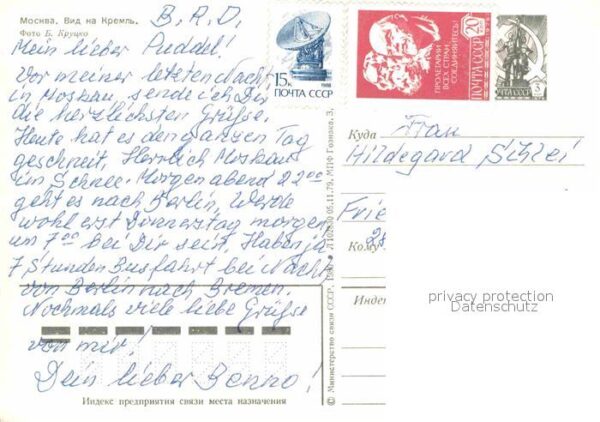 Москва. Вид на Кремль.
Фото Б. Круцко
B.R.D.
Mein lieber Puddel!
Vor meiner letzten Nacht
in Moskau, sende ich Dir
die herzlichsten Grüße.
Heute hat es den ganzen Tag
geschneit, Herrlich Moskau
im Schnee. Morgen abend 22 00
geht es nach Berlin, Werde
wohl erst Donnerstag morgen
um 7 00 bei Dir sein. Haben ja
7 Stunden Busfahrt bei Nacht
von Berlin nach Bremen.
Nochmals viele liebe Grüße
von mir!
Dein lieber Benno!
Индекс предприятия связи места назначения
© Министерство связи СССР, 05.11.79. МПФ Гознака, З.
15 к
1988
ПОЧТА СССР
ПРОЛЕТАРИИ
ВСЕХ СТРАН,
СОЕДИНЯЙТЕСЬ!
20
ПОЧТА СССР
ПОЧТА СССР
3
Куда
Frau
Hildegard Schlei
Frie
Кому
28
Индек
privacy protection
Datenschutz